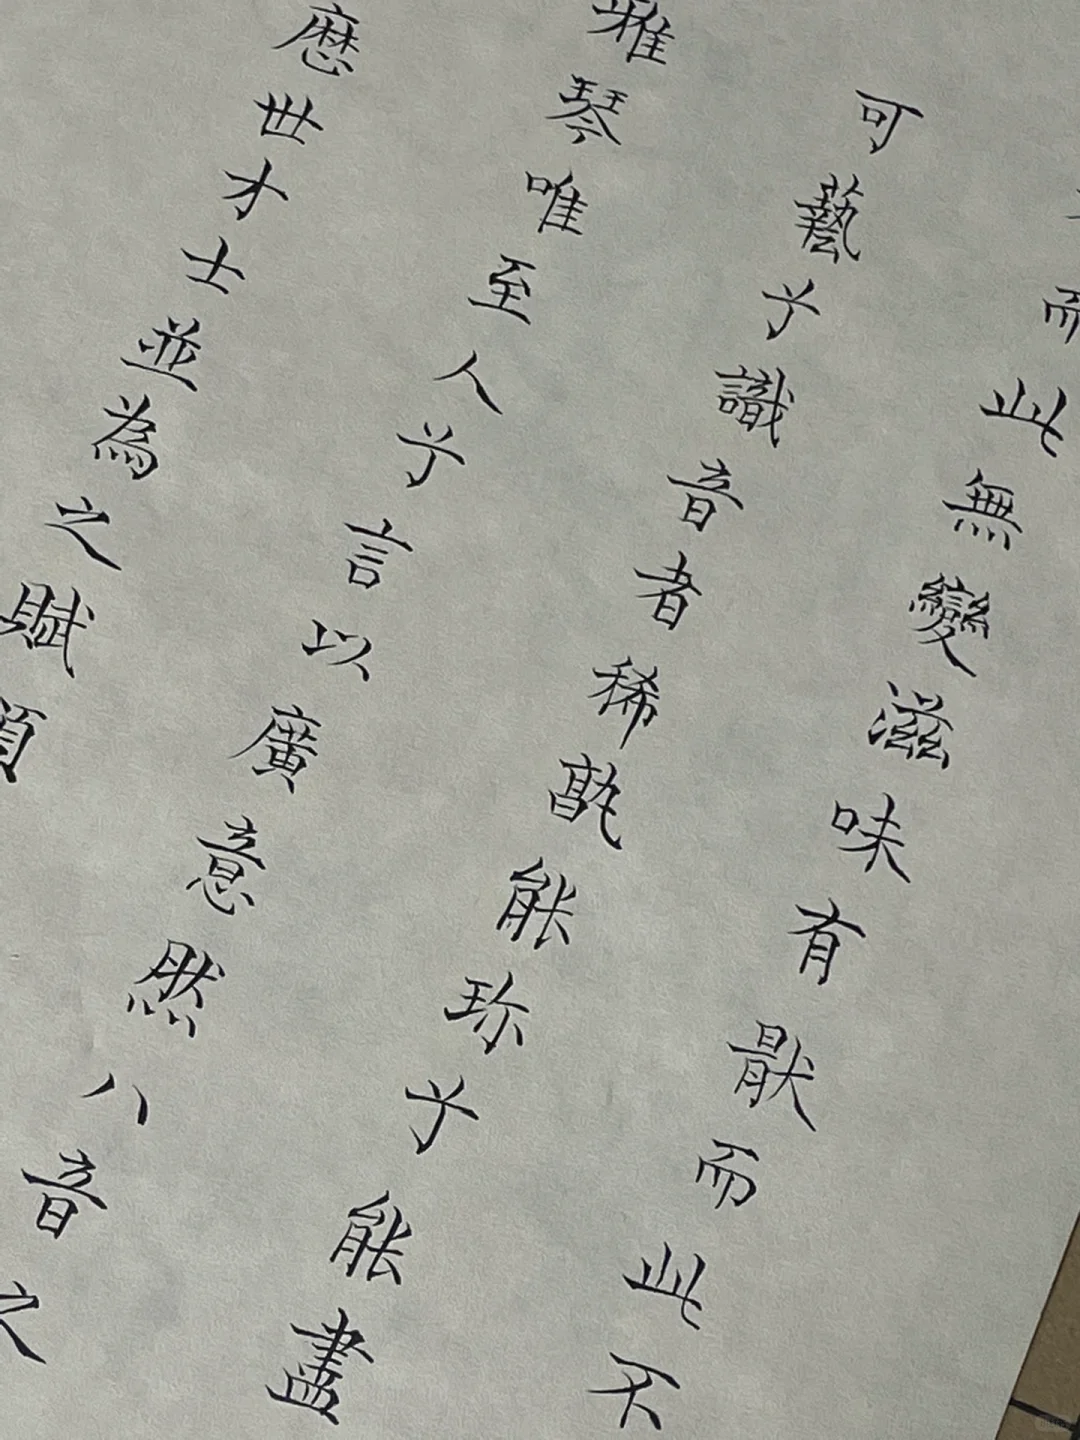 而此無變滋味有猒而此不
可藝兮識音者稀孰能珍兮能盡
雅琴唯至人兮言以廣意然八音之
歷世才士並為之賦